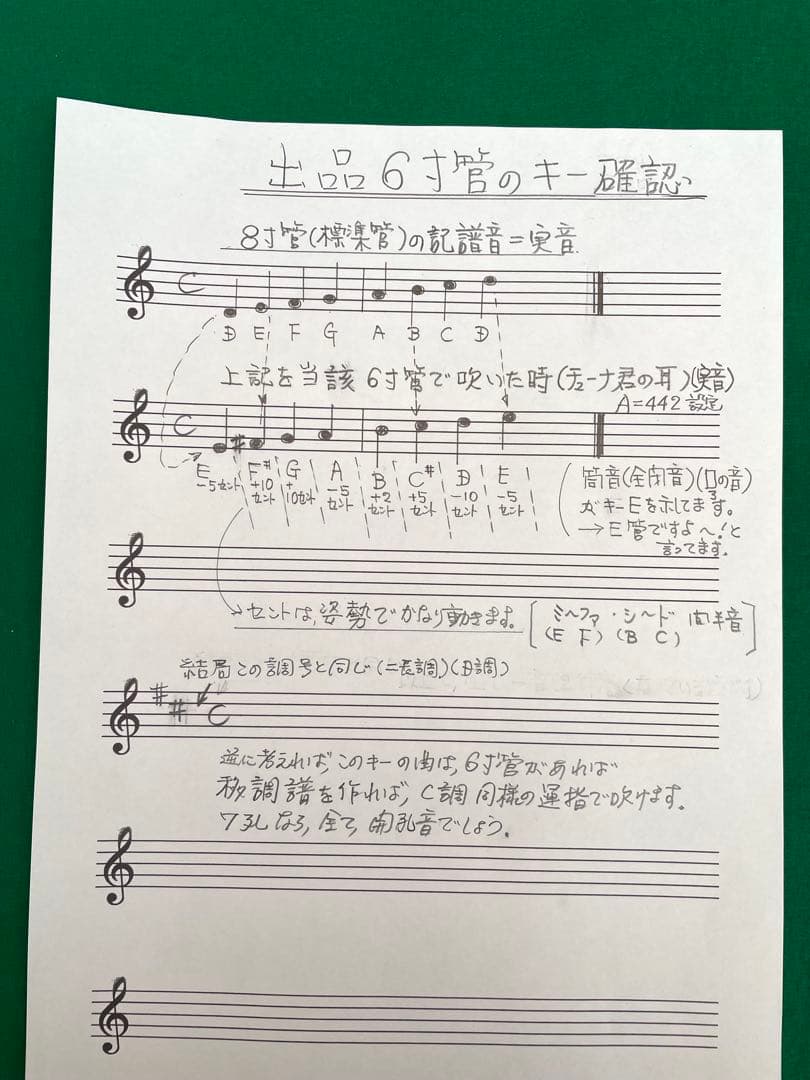 出品6寸管のキー確認
8寸管(標準管)の記譜音=実音
C
D E F G A B C D
上記を当該6寸管で吹いた時(チューナ君の耳)(実音)
A=442設定
C
#
E F# G A B C# D E
-5セント +10セント +10セント -5セント +2セント +5セント -10セント -5セント
筒音(全閉音)(口の音)
がキーEを示してます。
→E管ですよ〜!と
言ってます。
→セントは,姿勢でかなり動きます。
[ミ〜ファ・シ〜ド 間半音]
(E F) (B C)
結局この調号と同じ(ニ長調)(D調)
# # C
逆に考えれば,このキーの曲は,6寸管があれば
移調譜を作れば,C調同様の運指で吹けます。
7孔なら,全て,開孔音でしょう。